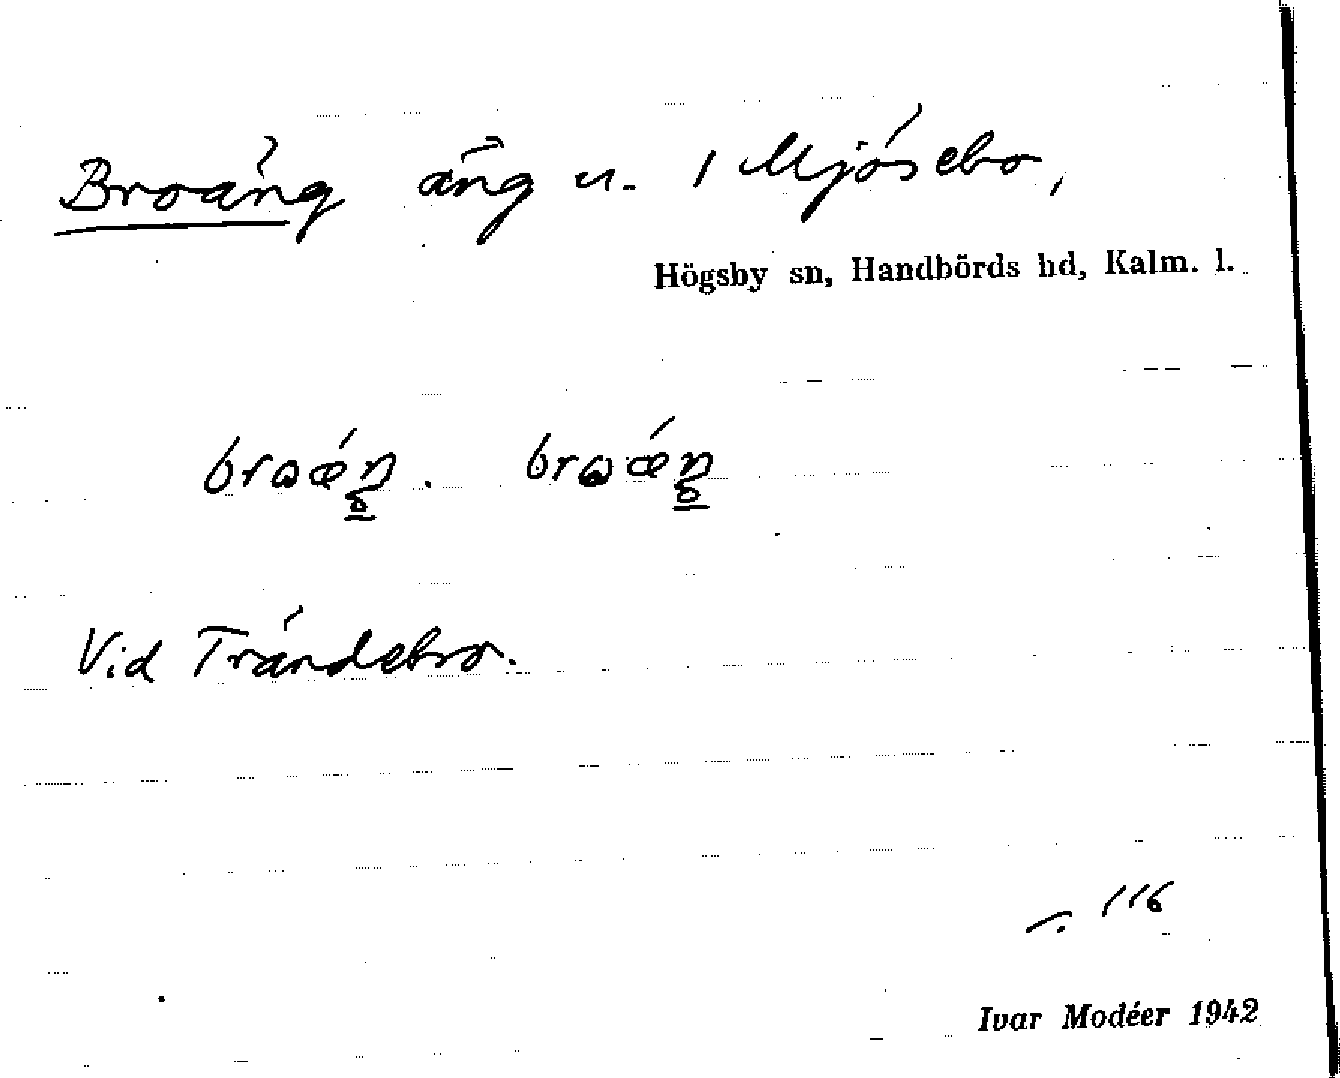 Broäng äng u. 1 Mjösebo,
Högsby sn, Handbörds hd, Kalm. l.
Vid Trändebro.
116
Ivar Modéer 1942